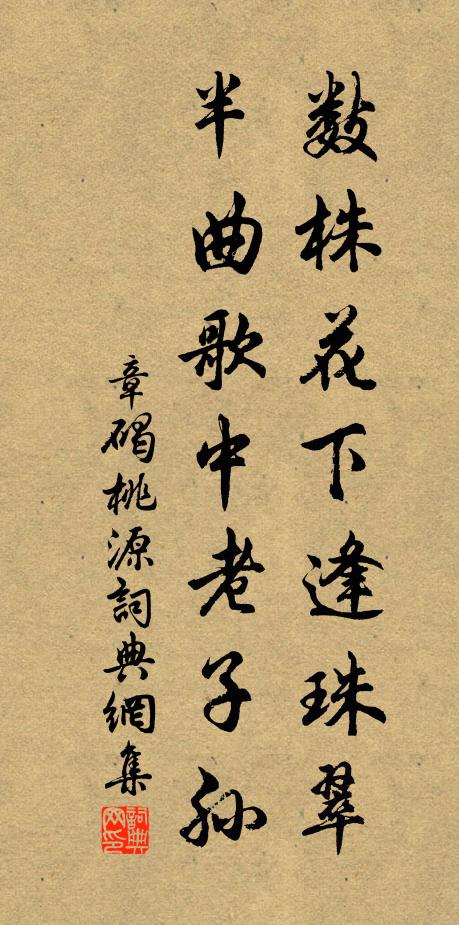 數株花下逢珠翠
半曲歌中老子孫
章碣桃源詞典網集
詞典网印